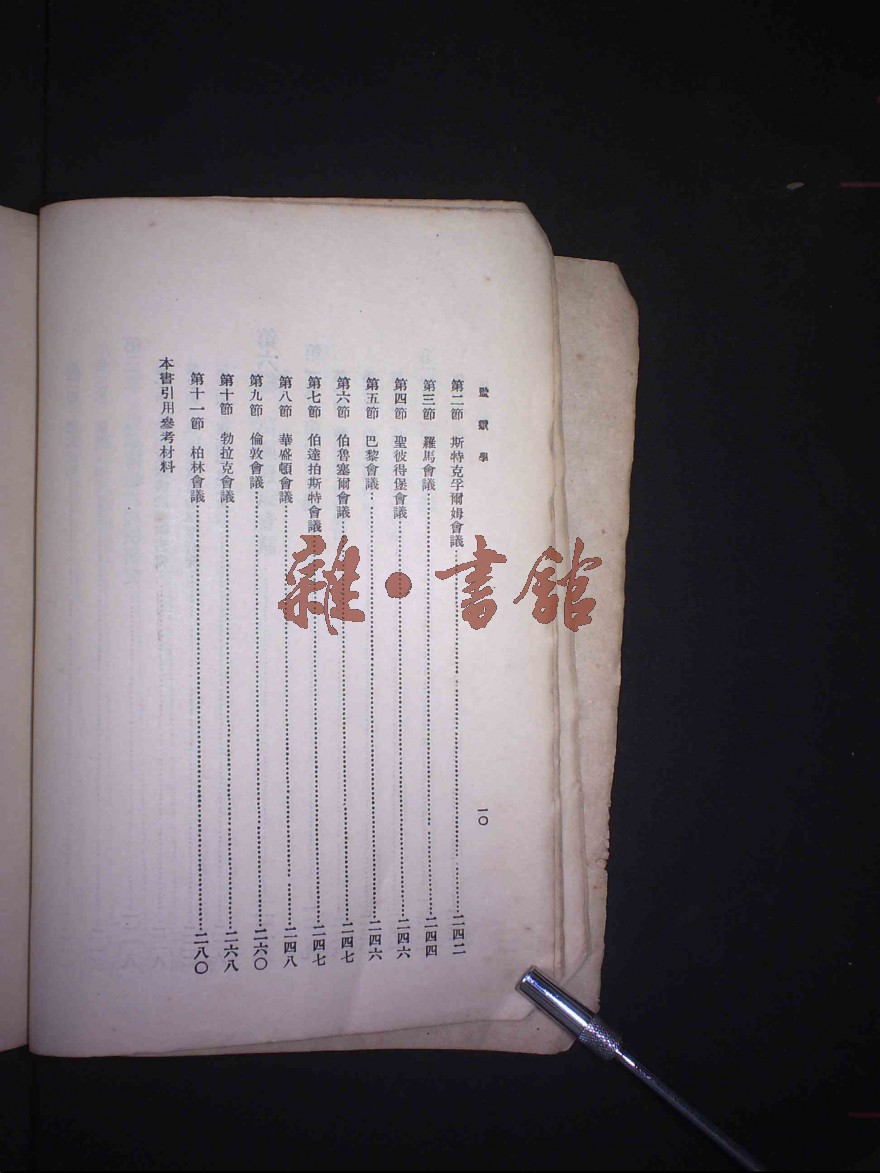 監獄學
一〇
第二節 斯特克孚爾姆會議……二四二
第三節 羅馬會議……二四四
第四節 聖彼得堡會議……二四六
第五節 巴黎會議……二四六
第六節 伯魯塞爾會議……二四七
第七節 伯達拍斯特會議……二四七
第八節 華盛頓會議……二四八
第九節 倫敦會議……二六〇
第十節 勃拉克會議……二六八
第十一節 柏林會議……二八〇
本書引用參考材料
雜·書館